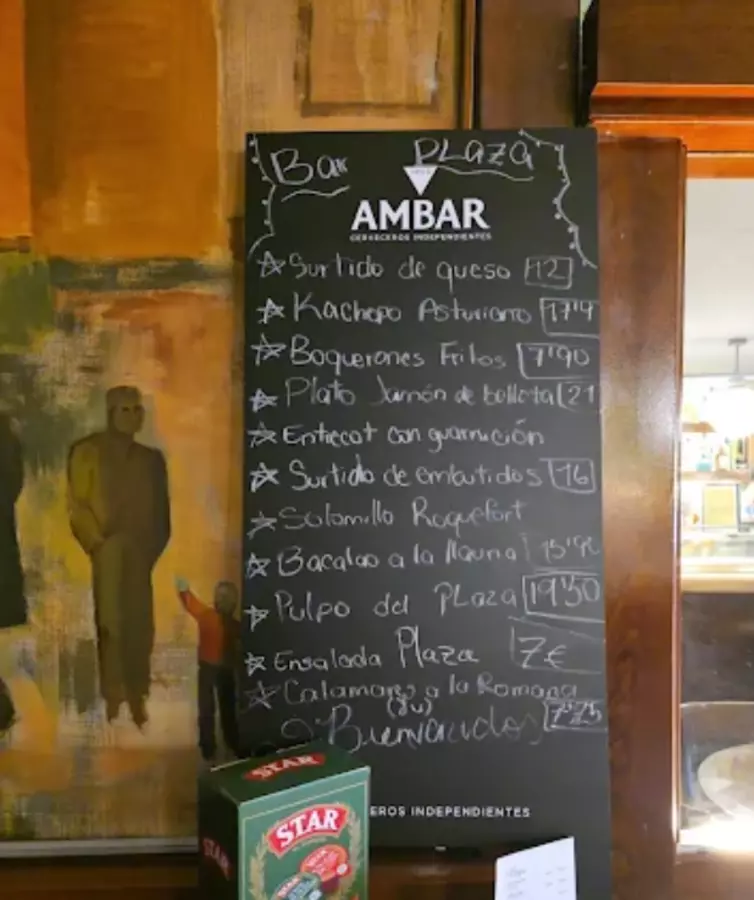 Bar PLaza
AMBAR
CERVECEROS INDEPENDIENTES
Surtido de queso 12
Kachopo Asturiano
Boquerones Fritos 7'90
Plato Jamón de bellota 21
Entrecot con guarnición
Surtido de embutidos 16
Solomillo Roquefort
Bacalao a la llauna
Pulpo del PLaza 19'50
Ensalada Plaza 7€
Calamares a la Romana
(8u) 7'25
Bienvenidos
STAR
EROS INDEPENDIENTES
STAR
STAR